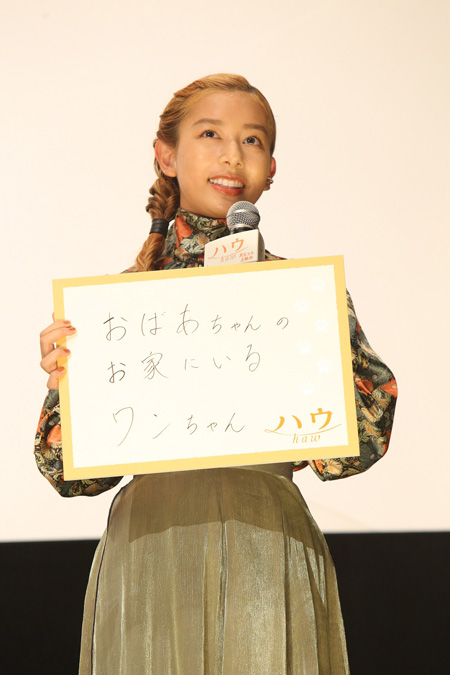 ハウ
おばあちゃんの
お家にいる
ワンちゃん
ハウ
haw